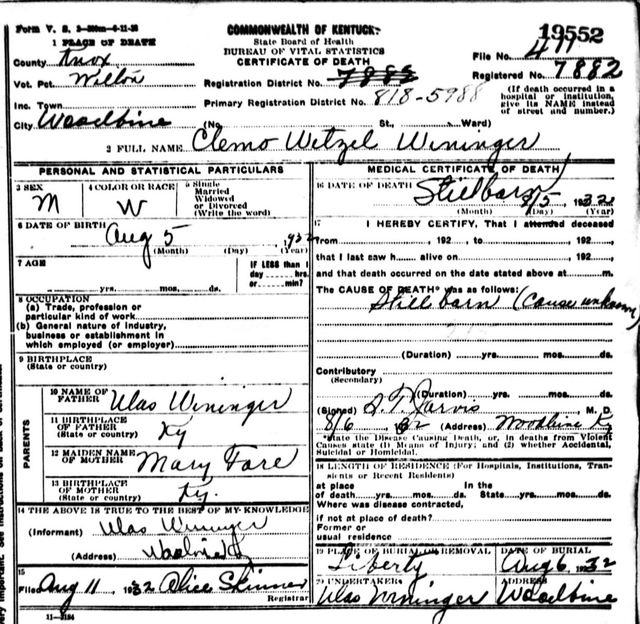 Form V. S.
COMMONWEALTH OF KENTUCKY
19552
1 PLACE OF DEATH
State Board of Health
BUREAU OF VITAL STATISTICS
CERTIFICATE OF DEATH
File No. 411
County Knox
Registered No. 7882
Vot. Pct. Wilton
Registration District No. 7882
(If death occurred in a hospital or institution, give its NAME instead of street and number.)
Inc. Town
Primary Registration District No. 818-5988
City Woodbine (No. St., Ward)
2 FULL NAME Clemo Wetzel Wininger
PERSONAL AND STATISTICAL PARTICULARS
3 SEX M
4 COLOR OR RACE W
5 Single
Married
Widowed
or Divorced
(Write the word)
6 DATE OF BIRTH Aug 5 1932
(Month) (Day) (Year)
7 AGE
IF LESS than 1
day hrs.
or min?
yrs. mos. ds.
8 OCCUPATION
(a) Trade, profession or
particular kind of work
(b) General nature of industry,
business or establishment in
which employed (or employer)
9 BIRTHPLACE
(State or country)
PARENTS
10 NAME OF
FATHER Ulas Wininger
11 BIRTHPLACE
OF FATHER
(State or country) Ky
12 MAIDEN NAME
OF MOTHER Mary Fore
13 BIRTHPLACE
OF MOTHER
(State or country) Ky.
14 THE ABOVE IS TRUE TO THE BEST OF MY KNOWLEDGE
(Informant) Ulas Wininger
(Address)
15
Filed Aug 11 1932 Alice Skinner
Registrar
MEDICAL CERTIFICATE OF DEATH
16 DATE OF DEATH Stillborn 8/5 1932
(Month) (Day) (Year)
17 I HEREBY CERTIFY, That I attended deceased
from , 192 , to , 192 ,
that I last saw h alive on , 192 ,
and that death occurred on the date stated above at m.
The CAUSE OF DEATH* was as follows:
Stillborn (cause unknown)
(Duration) yrs. mos. ds.
Contributory
(Secondary)
(Duration) yrs. mos. ds.
(Signed) Jarvis M. D.
8/6 32 (Address) Woodbine Ky
*State the Disease Causing Death, or, in deaths from Violent
Causes state (1) Means of Injury; and (2) whether Accidental,
Suicidal or Homicidal.
18 LENGTH OF RESIDENCE (For Hospitals, Institutions, Transients or Recent Residents)
at place In the
of death yrs. mos. ds. State yrs. mos. ds.
Where was disease contracted,
if not at place of death?
Former or
usual residence
19 PLACE OF BURIAL OR REMOVAL Liberty
DATE OF BURIAL Aug 6, 1932
20 UNDERTAKER Ulas Wininger
ADDRESS Woodbine
11-3184